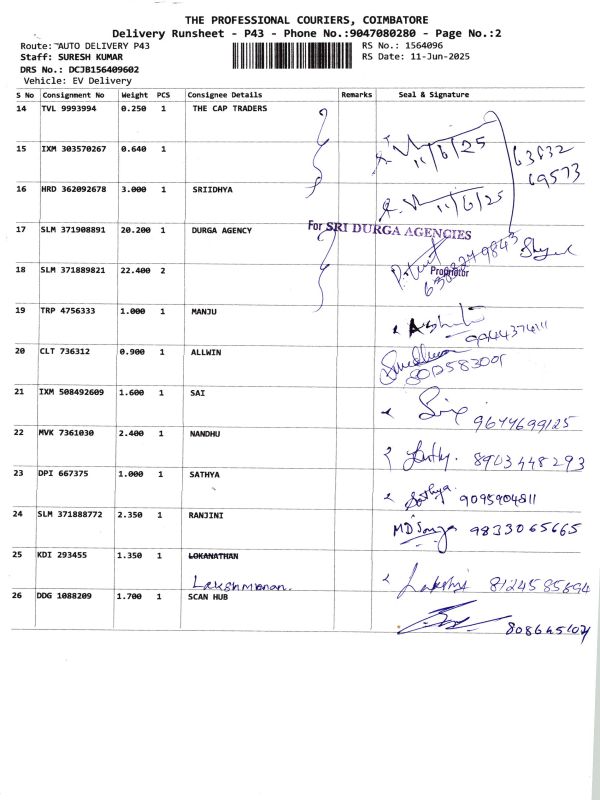 THE PROFESSIONAL COURIERS, COIMBATORE
Delivery Runsheet - P43 - Phone No.:9047080280 - Page No.:2
Route: AUTO DELIVERY P43 RS No.: 1564096
Staff: SURESH KUMAR RS Date: 11-Jun-2025
DRS No.: DCJB156409602
Vehicle: EV Delivery
S No Consignment No Weight PCS Consignee Details Remarks Seal & Signature
14 TVL 9993994 0.250 1 THE CAP TRADERS
11/6/25
63832
69573
15 IXM 303570267 0.640 1
16 HRD 362092678 3.000 1 SRIIDHYA
11/6/25
17 SLM 371908891 20.200 1 DURGA AGENCY
For SRI DURGA AGENCIES
6308279843
Proprietor
18 SLM 371889821 22.400 2
19 TRP 4756333 1.000 1 MANJU
9944374111
20 CLT 736312 0.900 1 ALLWIN
8012583005
21 IXM 508492609 1.600 1 SAI
9677699125
22 MVK 7361030 2.400 1 NANDHU
8903448293
23 DPI 667375 1.000 1 SATHYA
Sathya 9095904811
24 SLM 371888772 2.350 1 RANJINI
9833065665
25 KDI 293455 1.350 1 LOKANATHAN
Lakshmanan.
8124585694
26 DDG 1088209 1.700 1 SCAN HUB